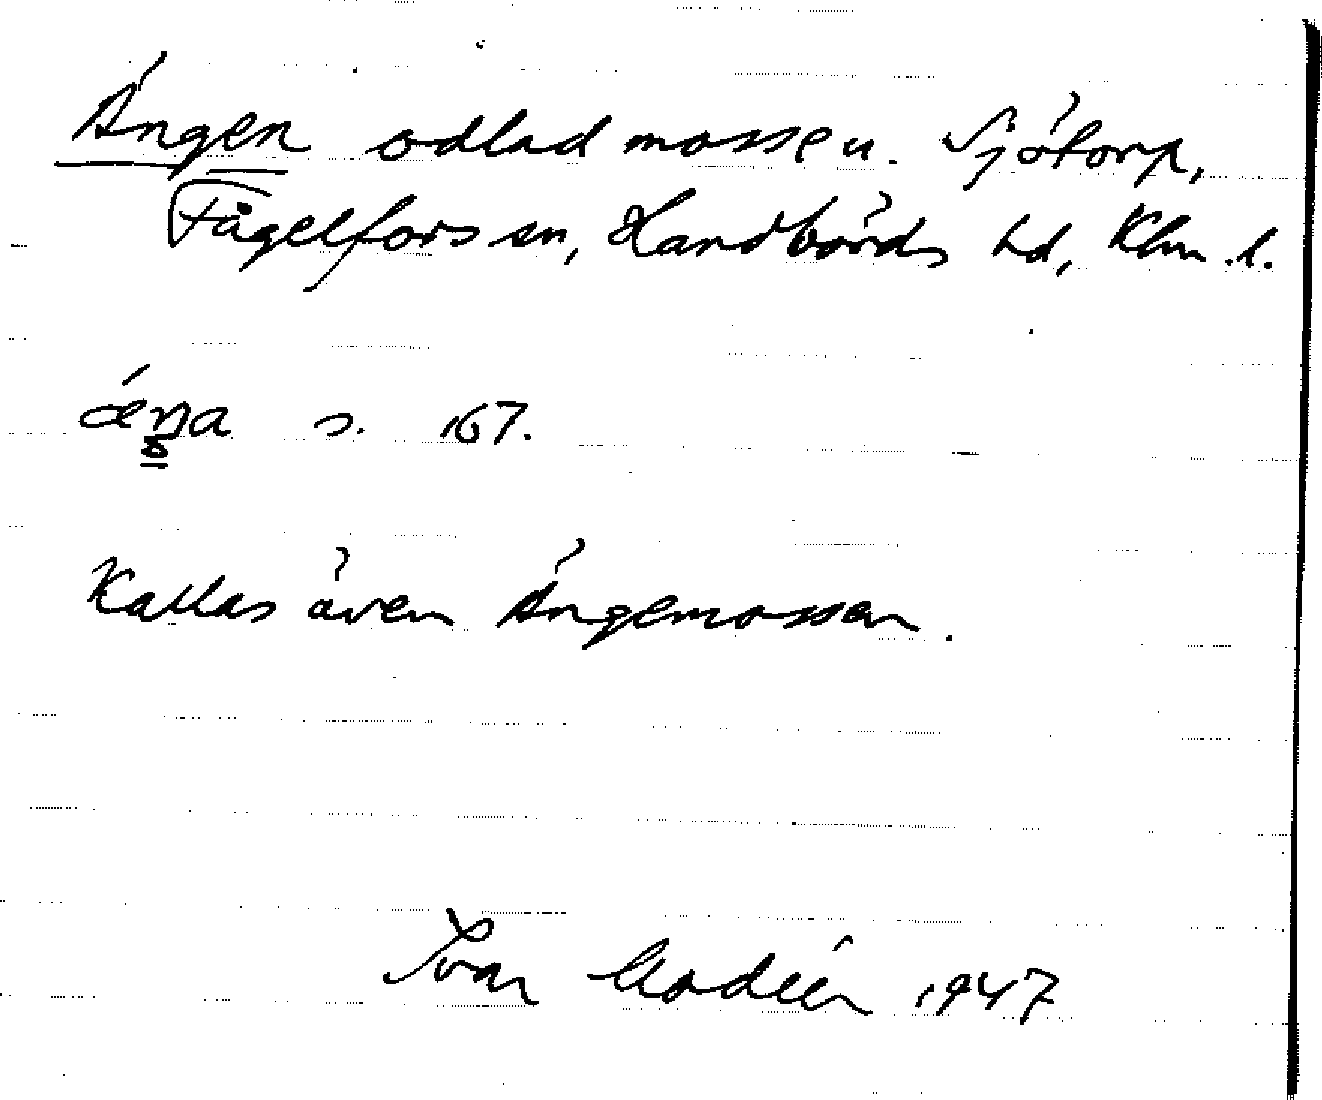 Ängen odlad mosse u. Sjötorp,
Fågelfors sn, Handbörds hd, Klm. l.
ǽŋa s. 167.
Kallas även Ängemossen.
Ivar Modéer 1947